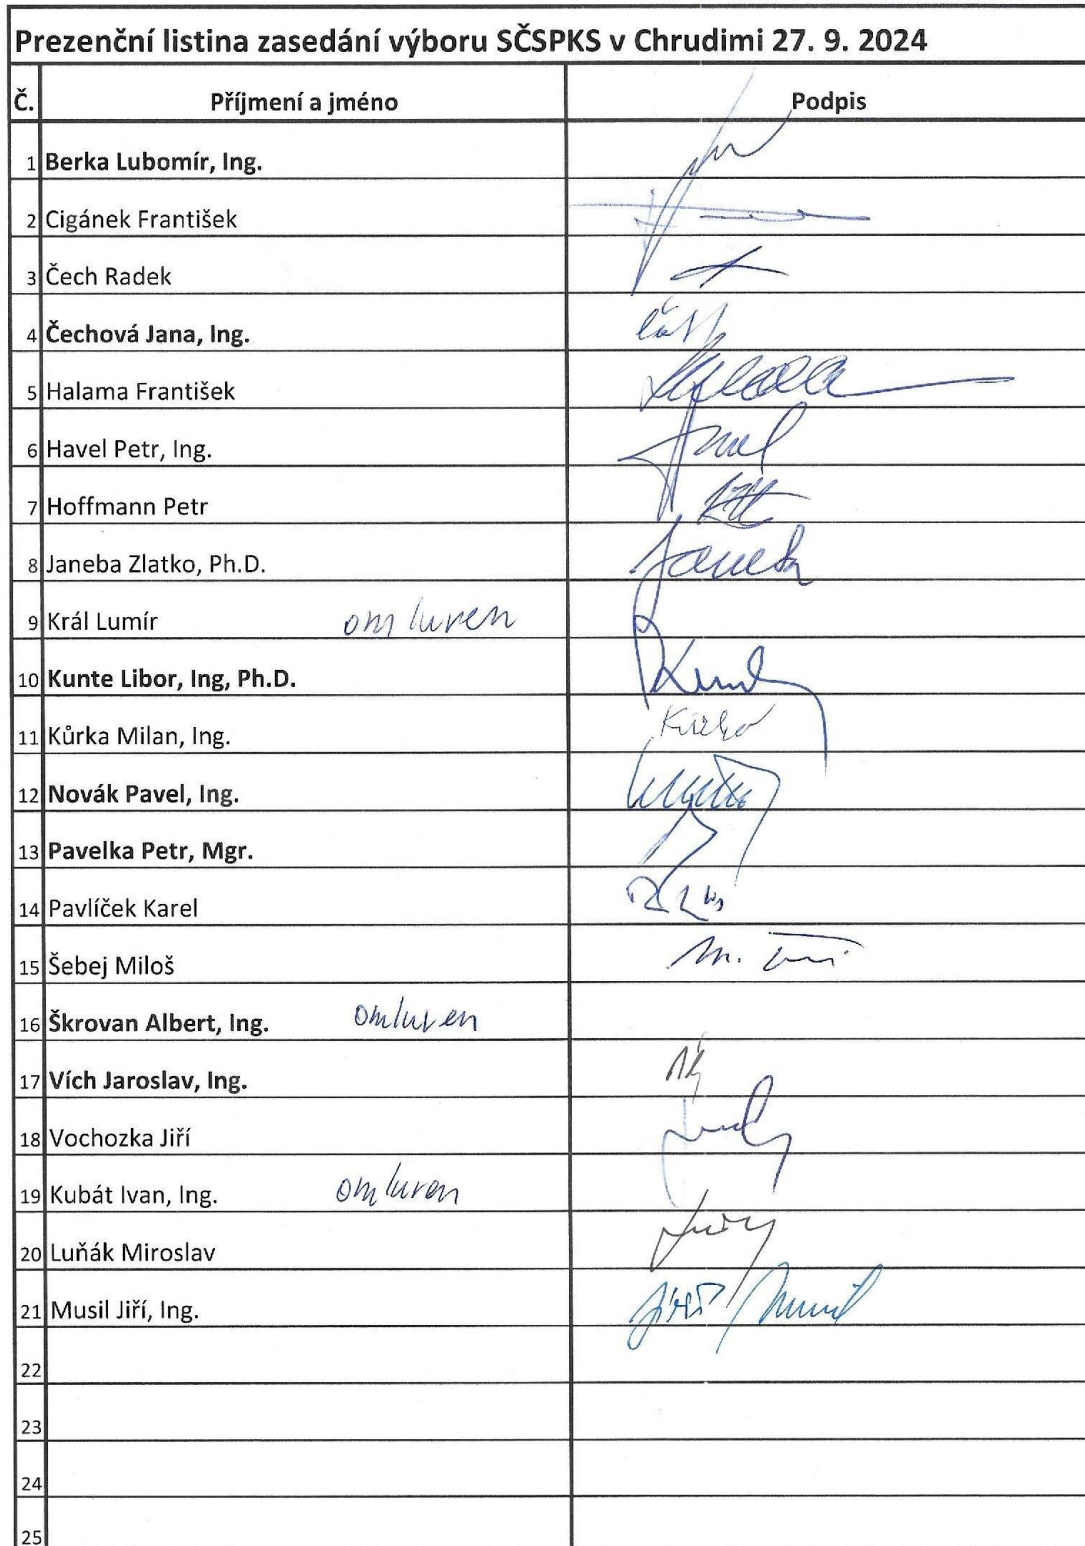 Prezenční listina zasedání výboru SČSPKS v Chrudimi 27. 9. 2024
Č. Příjmení a jméno Podpis
1 Berka Lubomír, Ing.
2 Cigánek František
3 Čech Radek
4 Čechová Jana, Ing.
5 Halama František
6 Havel Petr, Ing.
7 Hoffmann Petr
8 Janeba Zlatko, Ph.D.
9 Král Lumír omluven
10 Kunte Libor, Ing, Ph.D.
11 Kůrka Milan, Ing.
12 Novák Pavel, Ing.
13 Pavelka Petr, Mgr.
14 Pavlíček Karel
15 Šebej Miloš
16 Škrovan Albert, Ing. omluven
17 Vích Jaroslav, Ing.
18 Vochozka Jiří
19 Kubát Ivan, Ing. omluven
20 Luňák Miroslav
21 Musil Jiří, Ing.
22
23
24
25